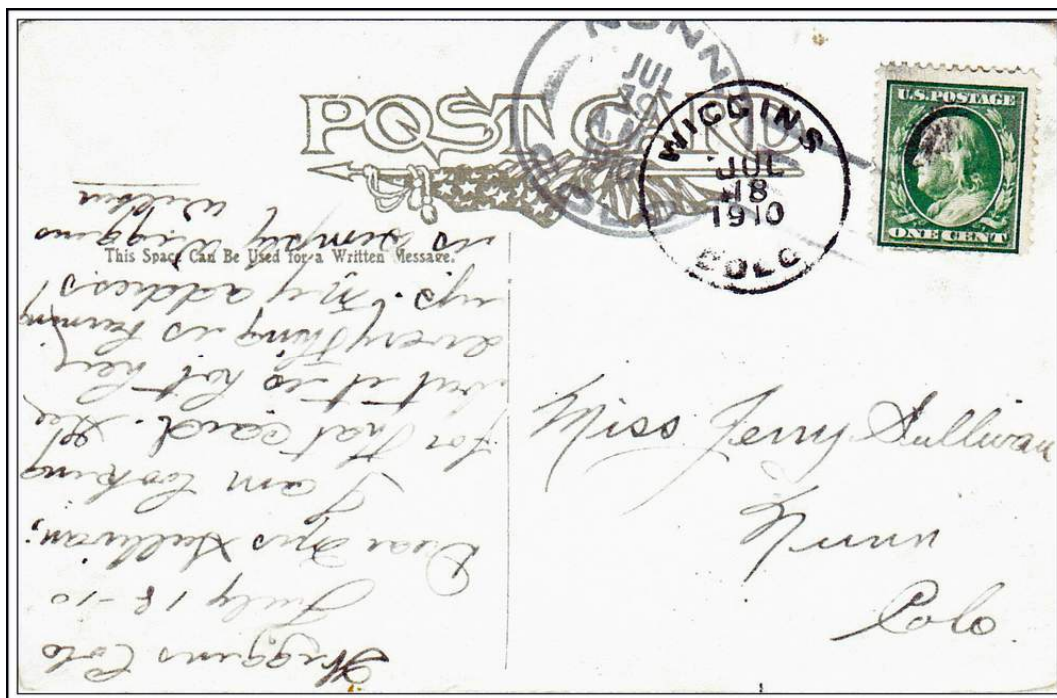 POST CARD
NUNN
JUL
A.M.
COLO
WIGGINS
JUL
18
1910
COLO
U.S. POSTAGE
ONE CENT
This Space Can Be Used for a Written Message.
Wiggins Colo
July 18 -10
Dear Sullivan;
I am looking
for that card. Gee
but it is hot here,
everything is burning
up. My address
is simply Wiggins
Miss Jerry Sullivan
Nunn
Colo.